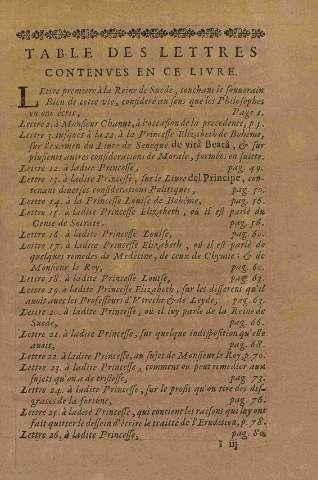 TABLE DES LETTRES
CONTENVES EN CE LIVRE.
LEttre premiere à la Reine de Suede, touchant le souuerain
Bien de cette vie, consideré au sens que les Philosophes
en ont écrit, Page 1.
Lettre 2. à Monsieur Chanut, à l'occasion de la precedente, p. 5.
Lettre 3. iusques à la 12. à la Princesse Elizabeth de Boheme,
sur l'examen du Liure de Seneque de vitâ Beatâ, & sur
plusieurs autres considerations de Morale, formées en suitte.
Lettre 12. à ladite Princesse, pag. 49.
Lettre 13. à ladite Princesse, sur le Livre del Principe, con-
tenant diuerses considerations Politiques, pag. 50.
Lettre 14. à la Princesse Louise de Bohême, pag. 56.
Lettre 15. à ladite Princesse Elizabeth, où il est parlé du
Genie de Socrate. pag. 56.
Lettre 16. à ladite Princesse Louise, pag. 60.
Lettre 17. à ladite Princesse Elizabeth, où il est parlé de
quelques remedes de Medecine, de ceux de Chymie; & de
Monsieur le Roy, pag. 60.
Lettre 18. à ladite Princesse Louise, pag. 63.
Lettre 19. à ladite Princesse Elizabeth, sur les differens qu'il
auoit auec les Professeurs d'Vtrecht & de Leyde, pag. 63.
Lettre 20. à ladite Princesse, où il luy parle de la Reine de
Suede, pag. 66.
Lettre 21. à ladite Princesse, sur quelque indisposition qu'elle
auoit, pag. 68.
Lettre 22. à ladite Princesse, au sujet de Monsieur le Roy, p. 70.
Lettre 23. à ladite Princesse, comment on peut remedier aux
sujets qu'on a de tristesse, pag. 73.
Lettre 24. à ladite Princesse, sur le profit qu'on tire des dis-
graces de la fortune, pag. 76.
Lettre 25. à ladite Princesse, qui contient les raisons qui luy ont
fait quitter le dessein d'écrire le traitté de l'Erudition, p. 78.
Lettre 26. à ladite Princesse, pag. 80.
i iij